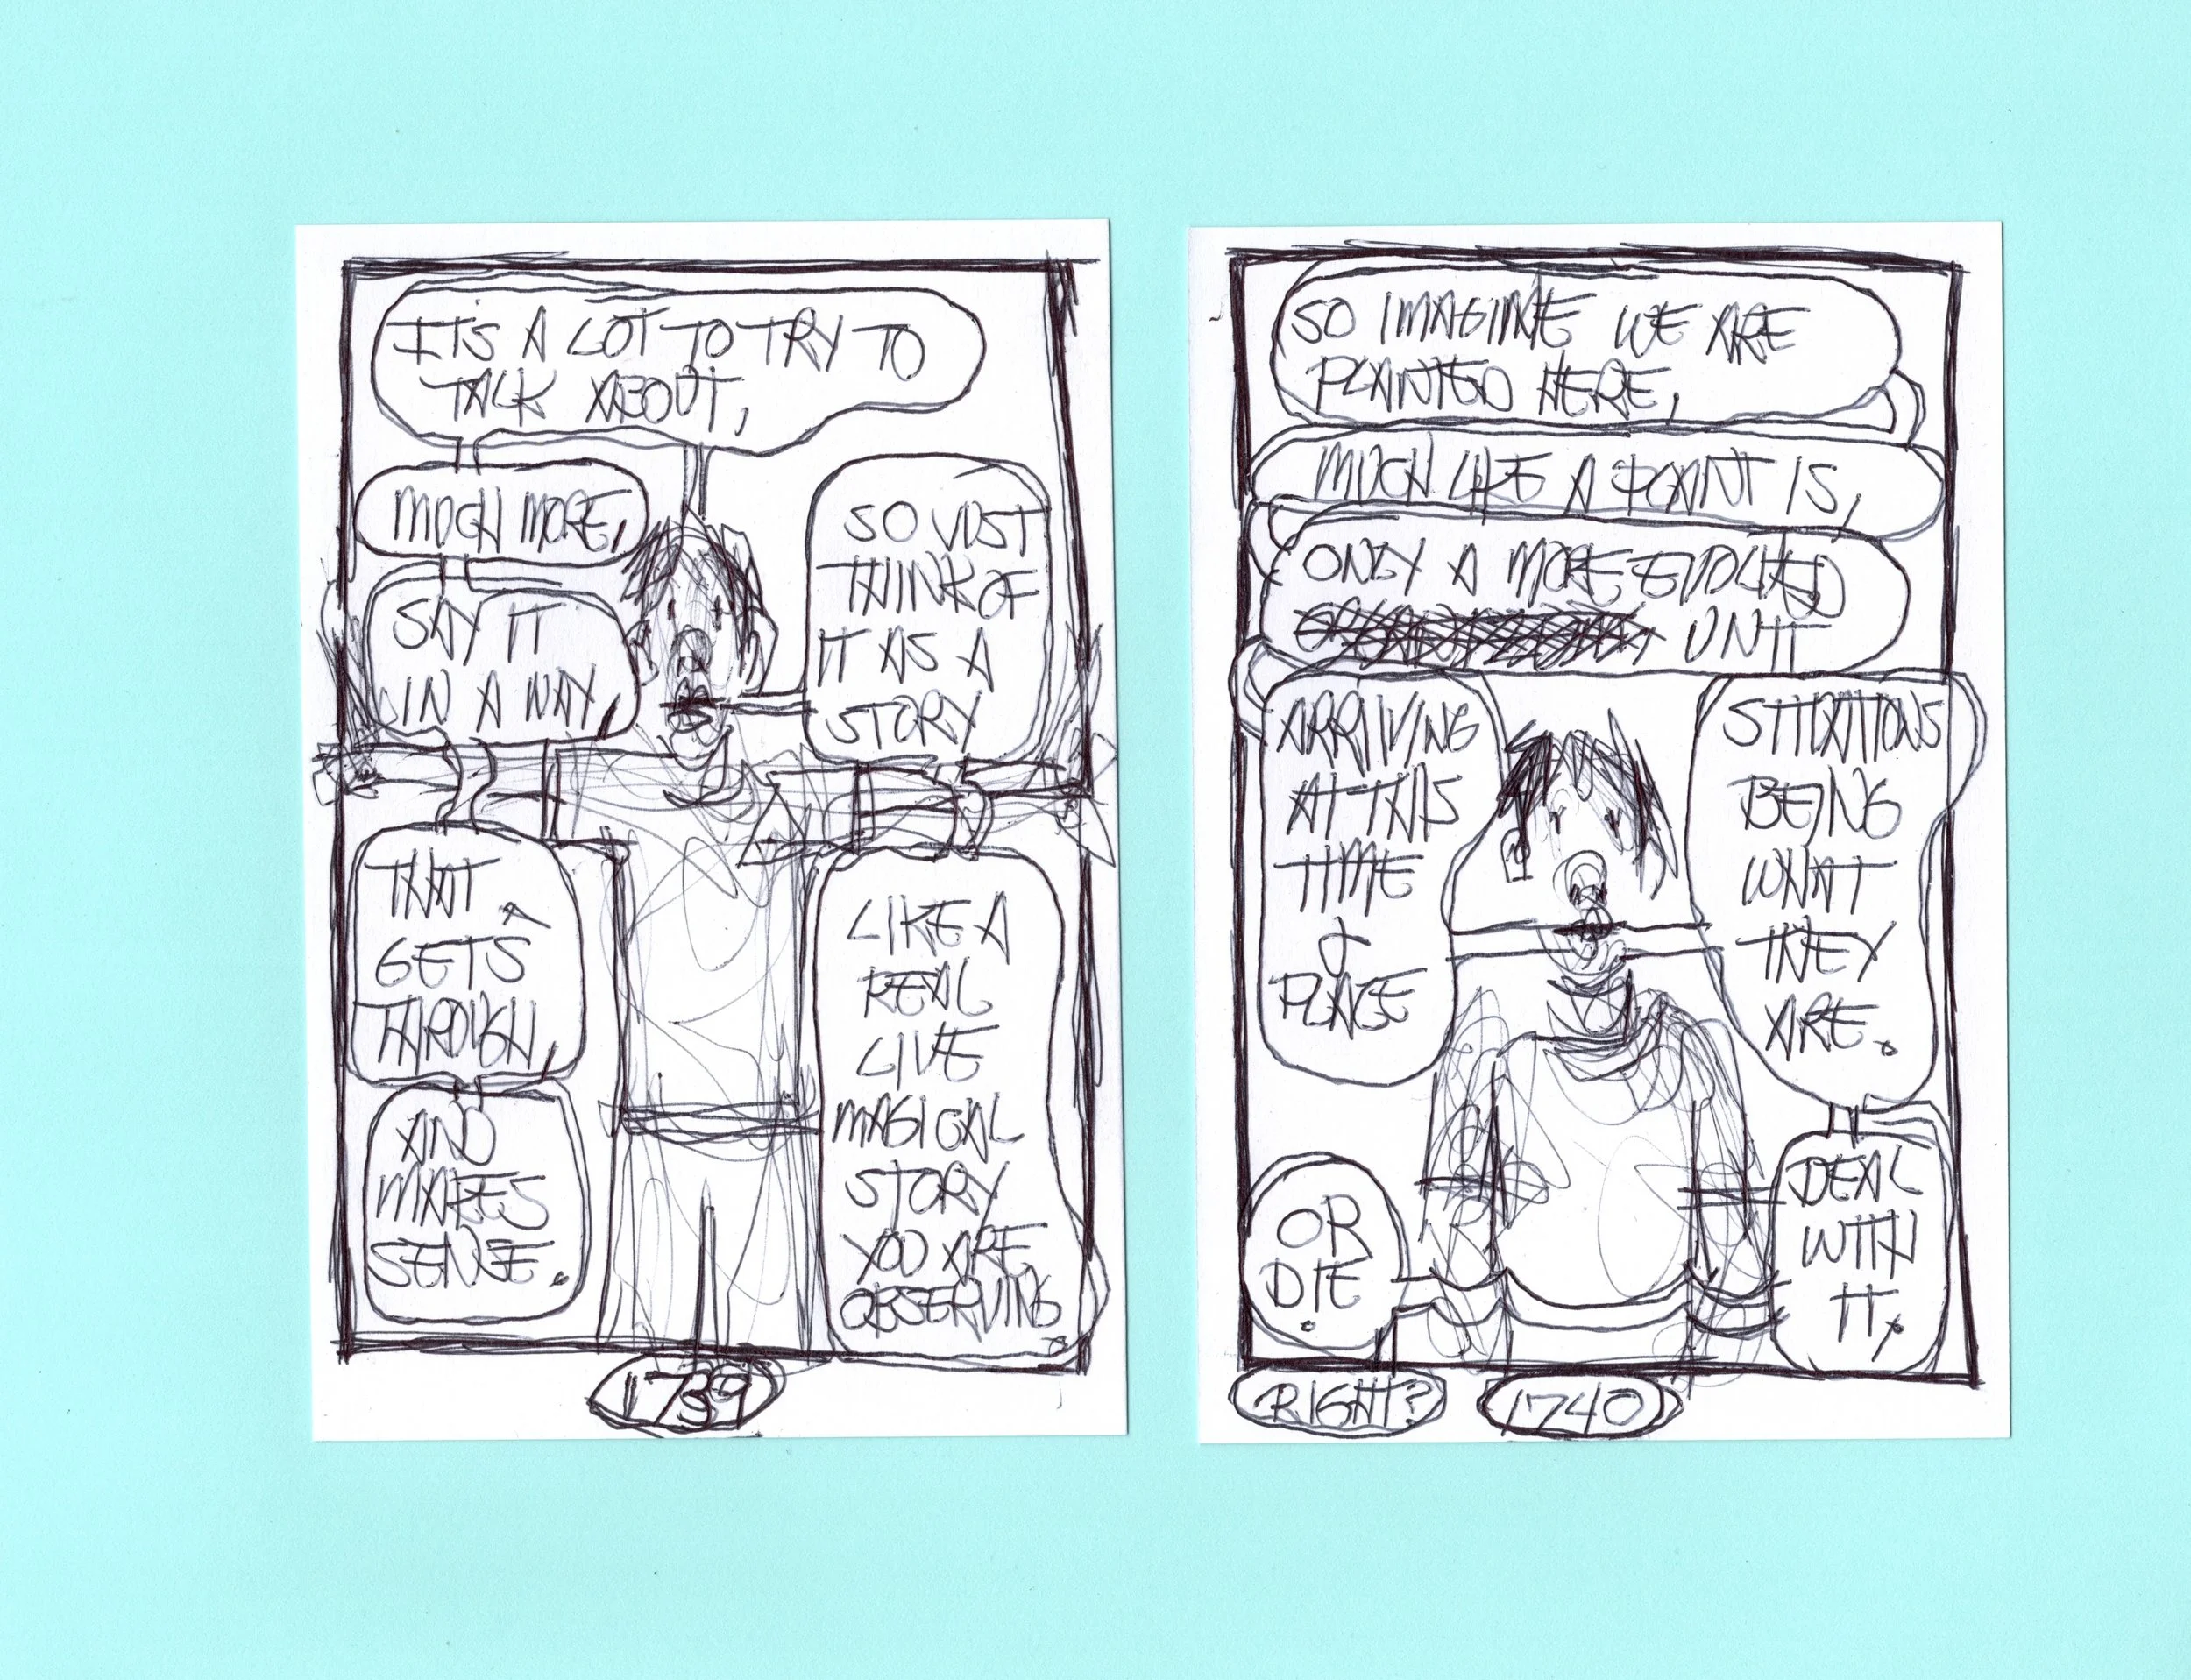 ITS A LOT TO TRY TO
TALK ABOUT,
MUCH MORE,
SAY IT
IN A WAY,
THAT
GETS
THROUGH,
AND
MAKES
SENSE.
SO JUST
THINK OF
IT AS A
STORY
LIKE A
REAL
LIVE
MAGICAL
STORY
YOU ARE
OBSERVING.
1739
SO IMAGINE WE ARE
PLANTED HERE,
MUCH LIKE A PLANT IS,
ONLY A MORE EVOLVED
UNIT
ARRIVING
AT THIS
TIME
&
PLACE
SITUATIONS
BEING
WHAT
THEY
ARE.
DEAL
WITH
IT,
OR
DIE.
RIGHT?
1740